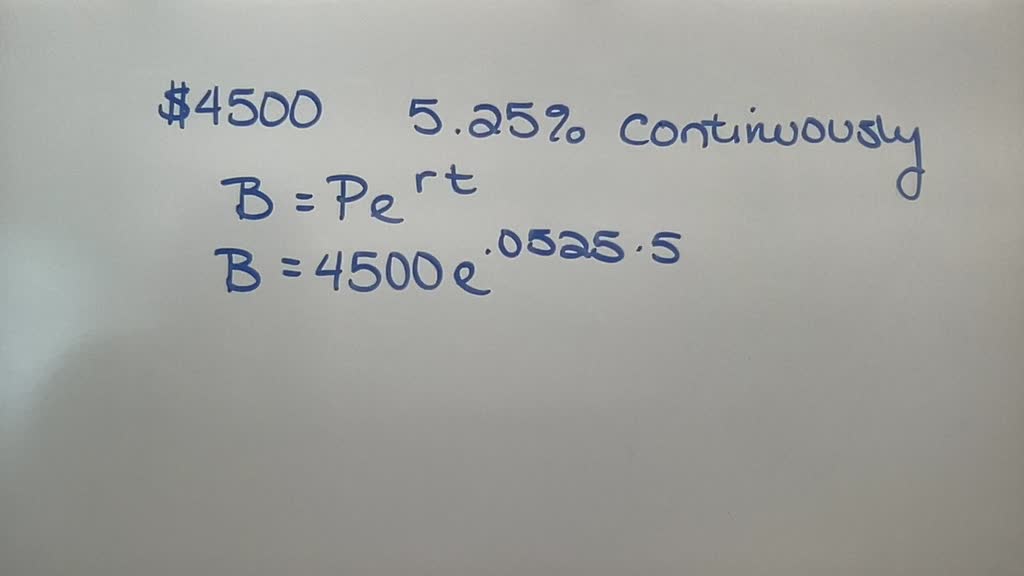 $4500 5.25% continuously
B = Pe^rt
B = 4500e^.0525·5